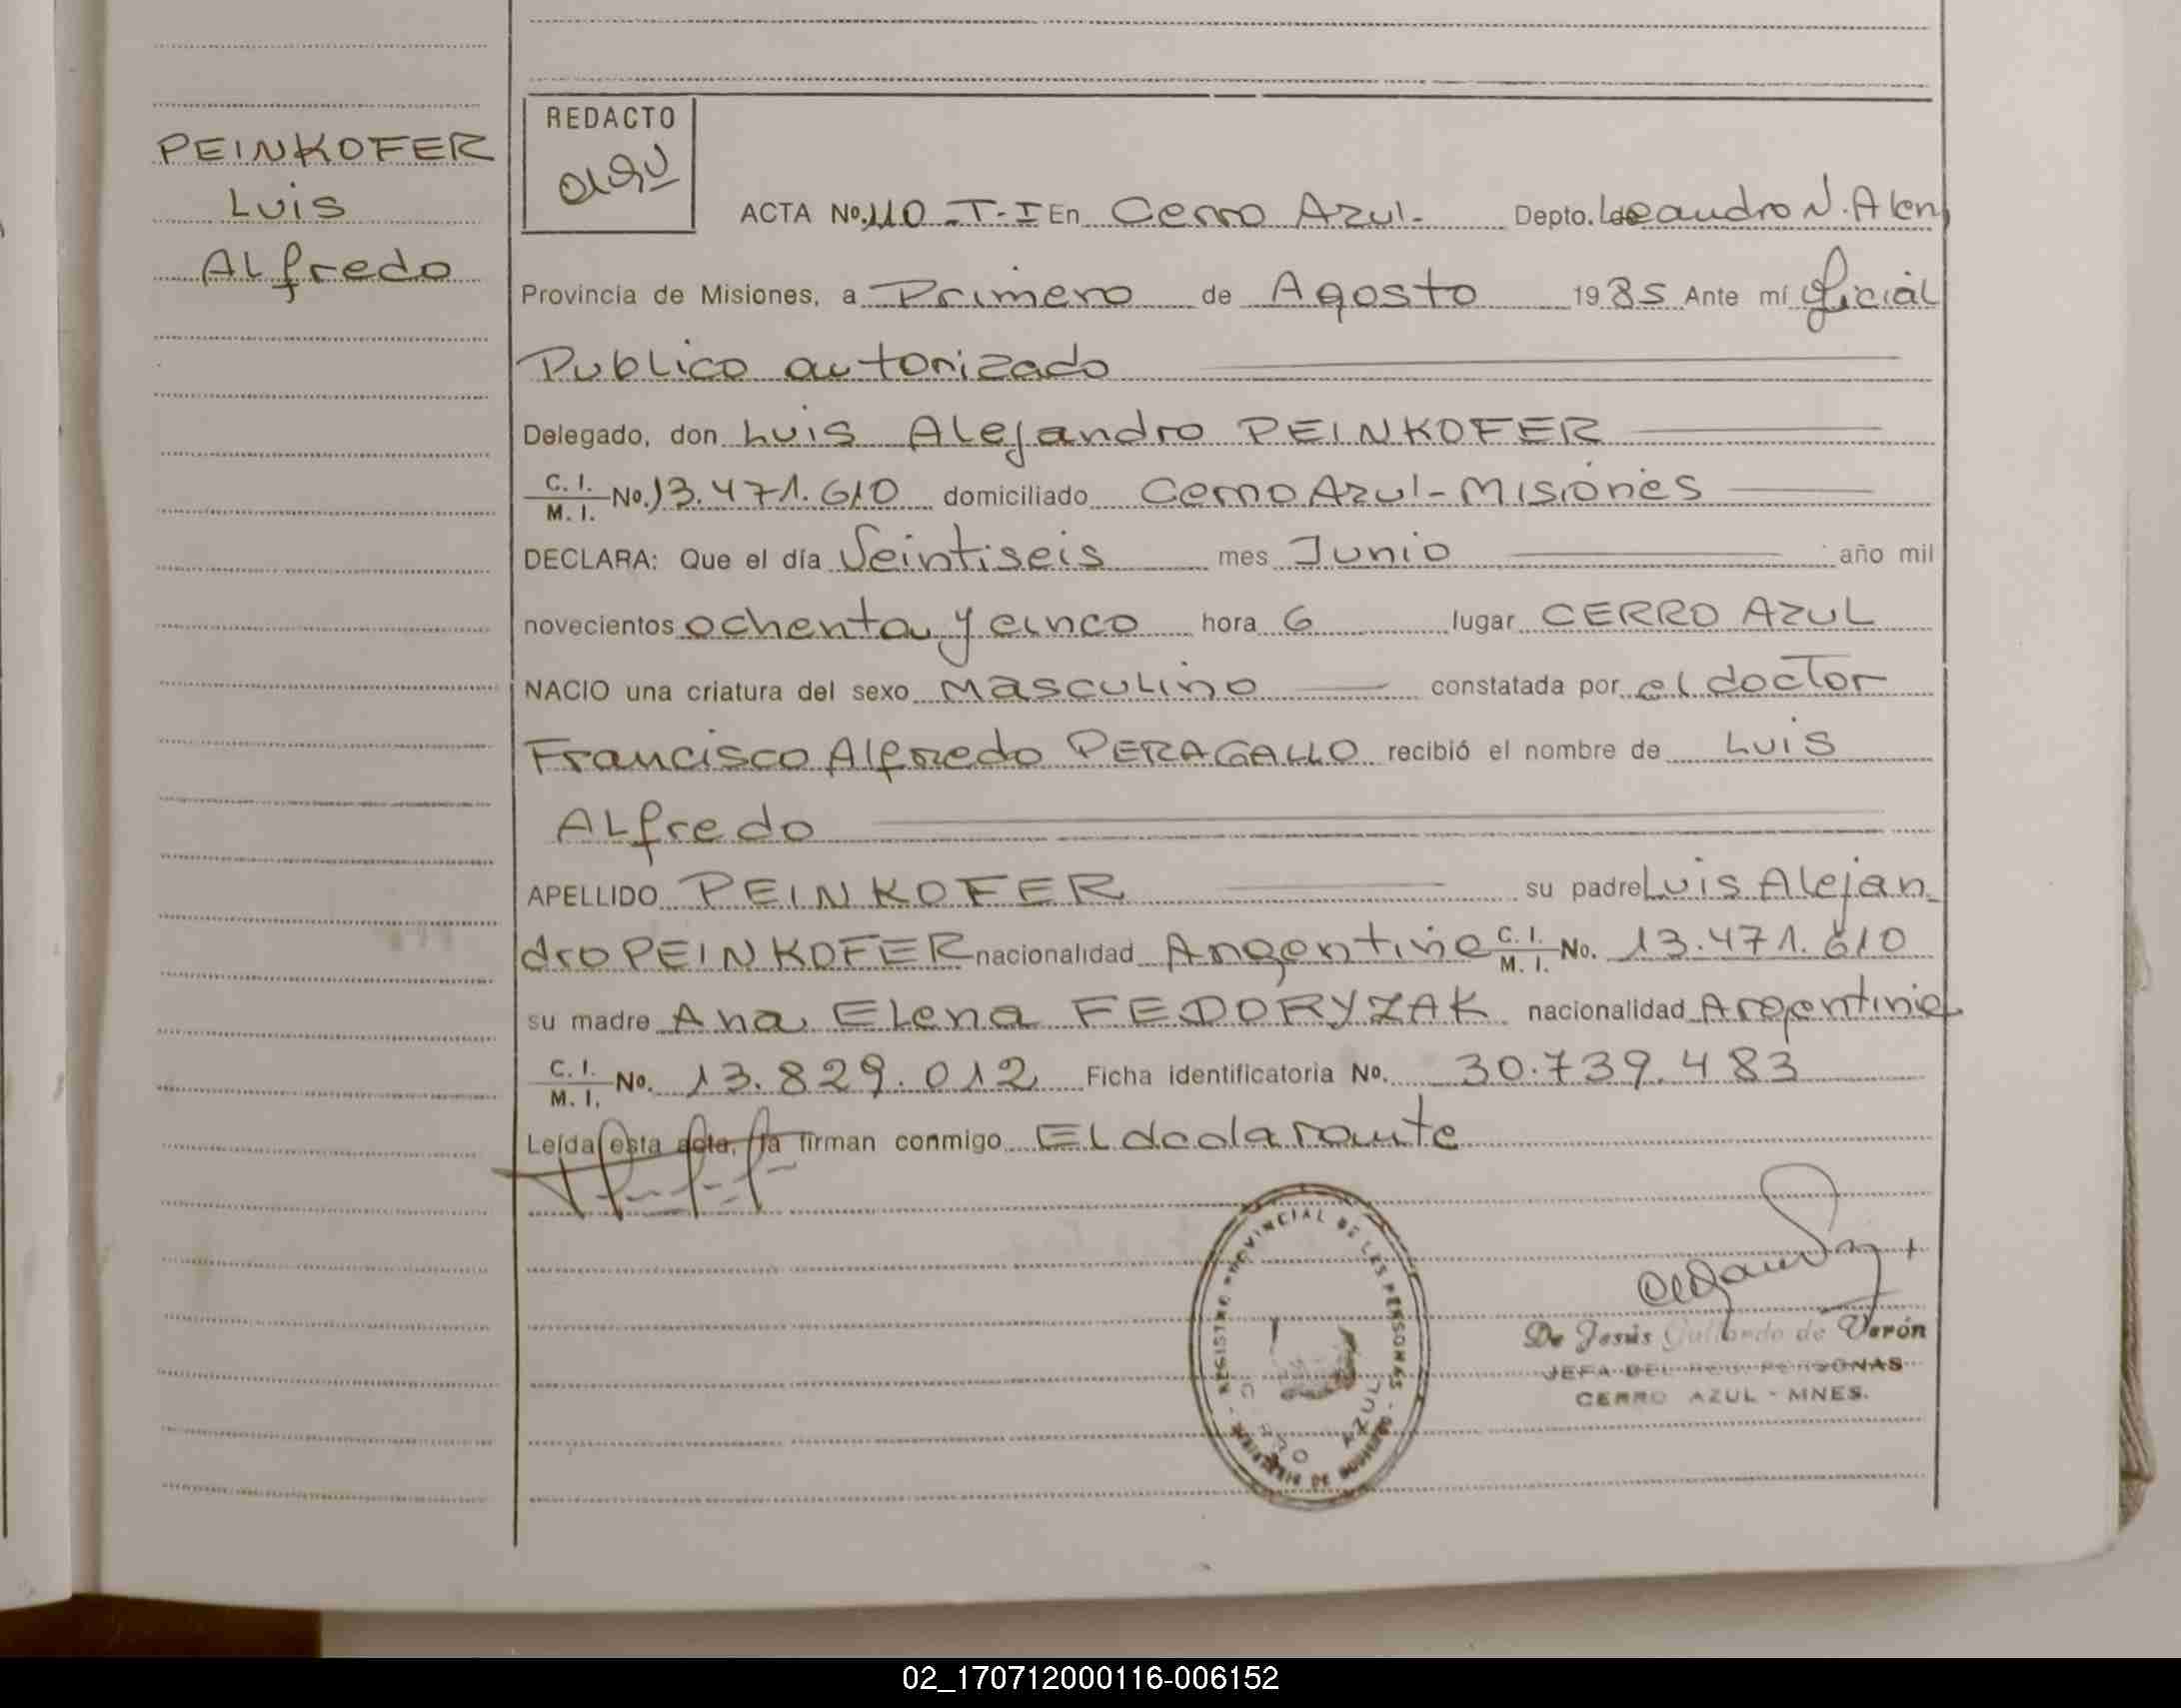 PEINKOFER
Luis
Alfredo
REDACTO
ACTA No. 110 - T-I En Cerro Azul- Depto. Leandro N. Alem
Provincia de Misiones, a Primero de Agosto 1985 Ante mí Oficial
Publico autorizado
Delegado, don Luis Alejandro PEINKOFER
C. I. M. I. No. 13.471.610 domiciliado Cerro Azul - Misiones
DECLARA: Que el día Veintiseis mes Junio año mil
novecientos ochenta y cinco hora 6 lugar CERRO AZUL
NACIO una criatura del sexo Masculino constatada por el doctor
Francisco Alfredo PERAGALLO recibió el nombre de Luis
Alfredo
APELLIDO PEINKOFER su padre Luis Alejan
dro PEINKOFER nacionalidad Argentino C. I. M. I. No. 13.471.610
su madre Ana Elena FEDORYZAK nacionalidad Argentina
C. I. M. I. No. 13.829.012 Ficha identificatoria No. 30.739.483
Leída esta acta, la firman conmigo El declarante
REGISTRO PROVINCIAL DE LES PERSONAS
CERRO AZUL
De Jesús Gallardo de Verón
JEFA DEL REG. PERSONAS
CERRO AZUL - MNES.
02_170712000116-006152